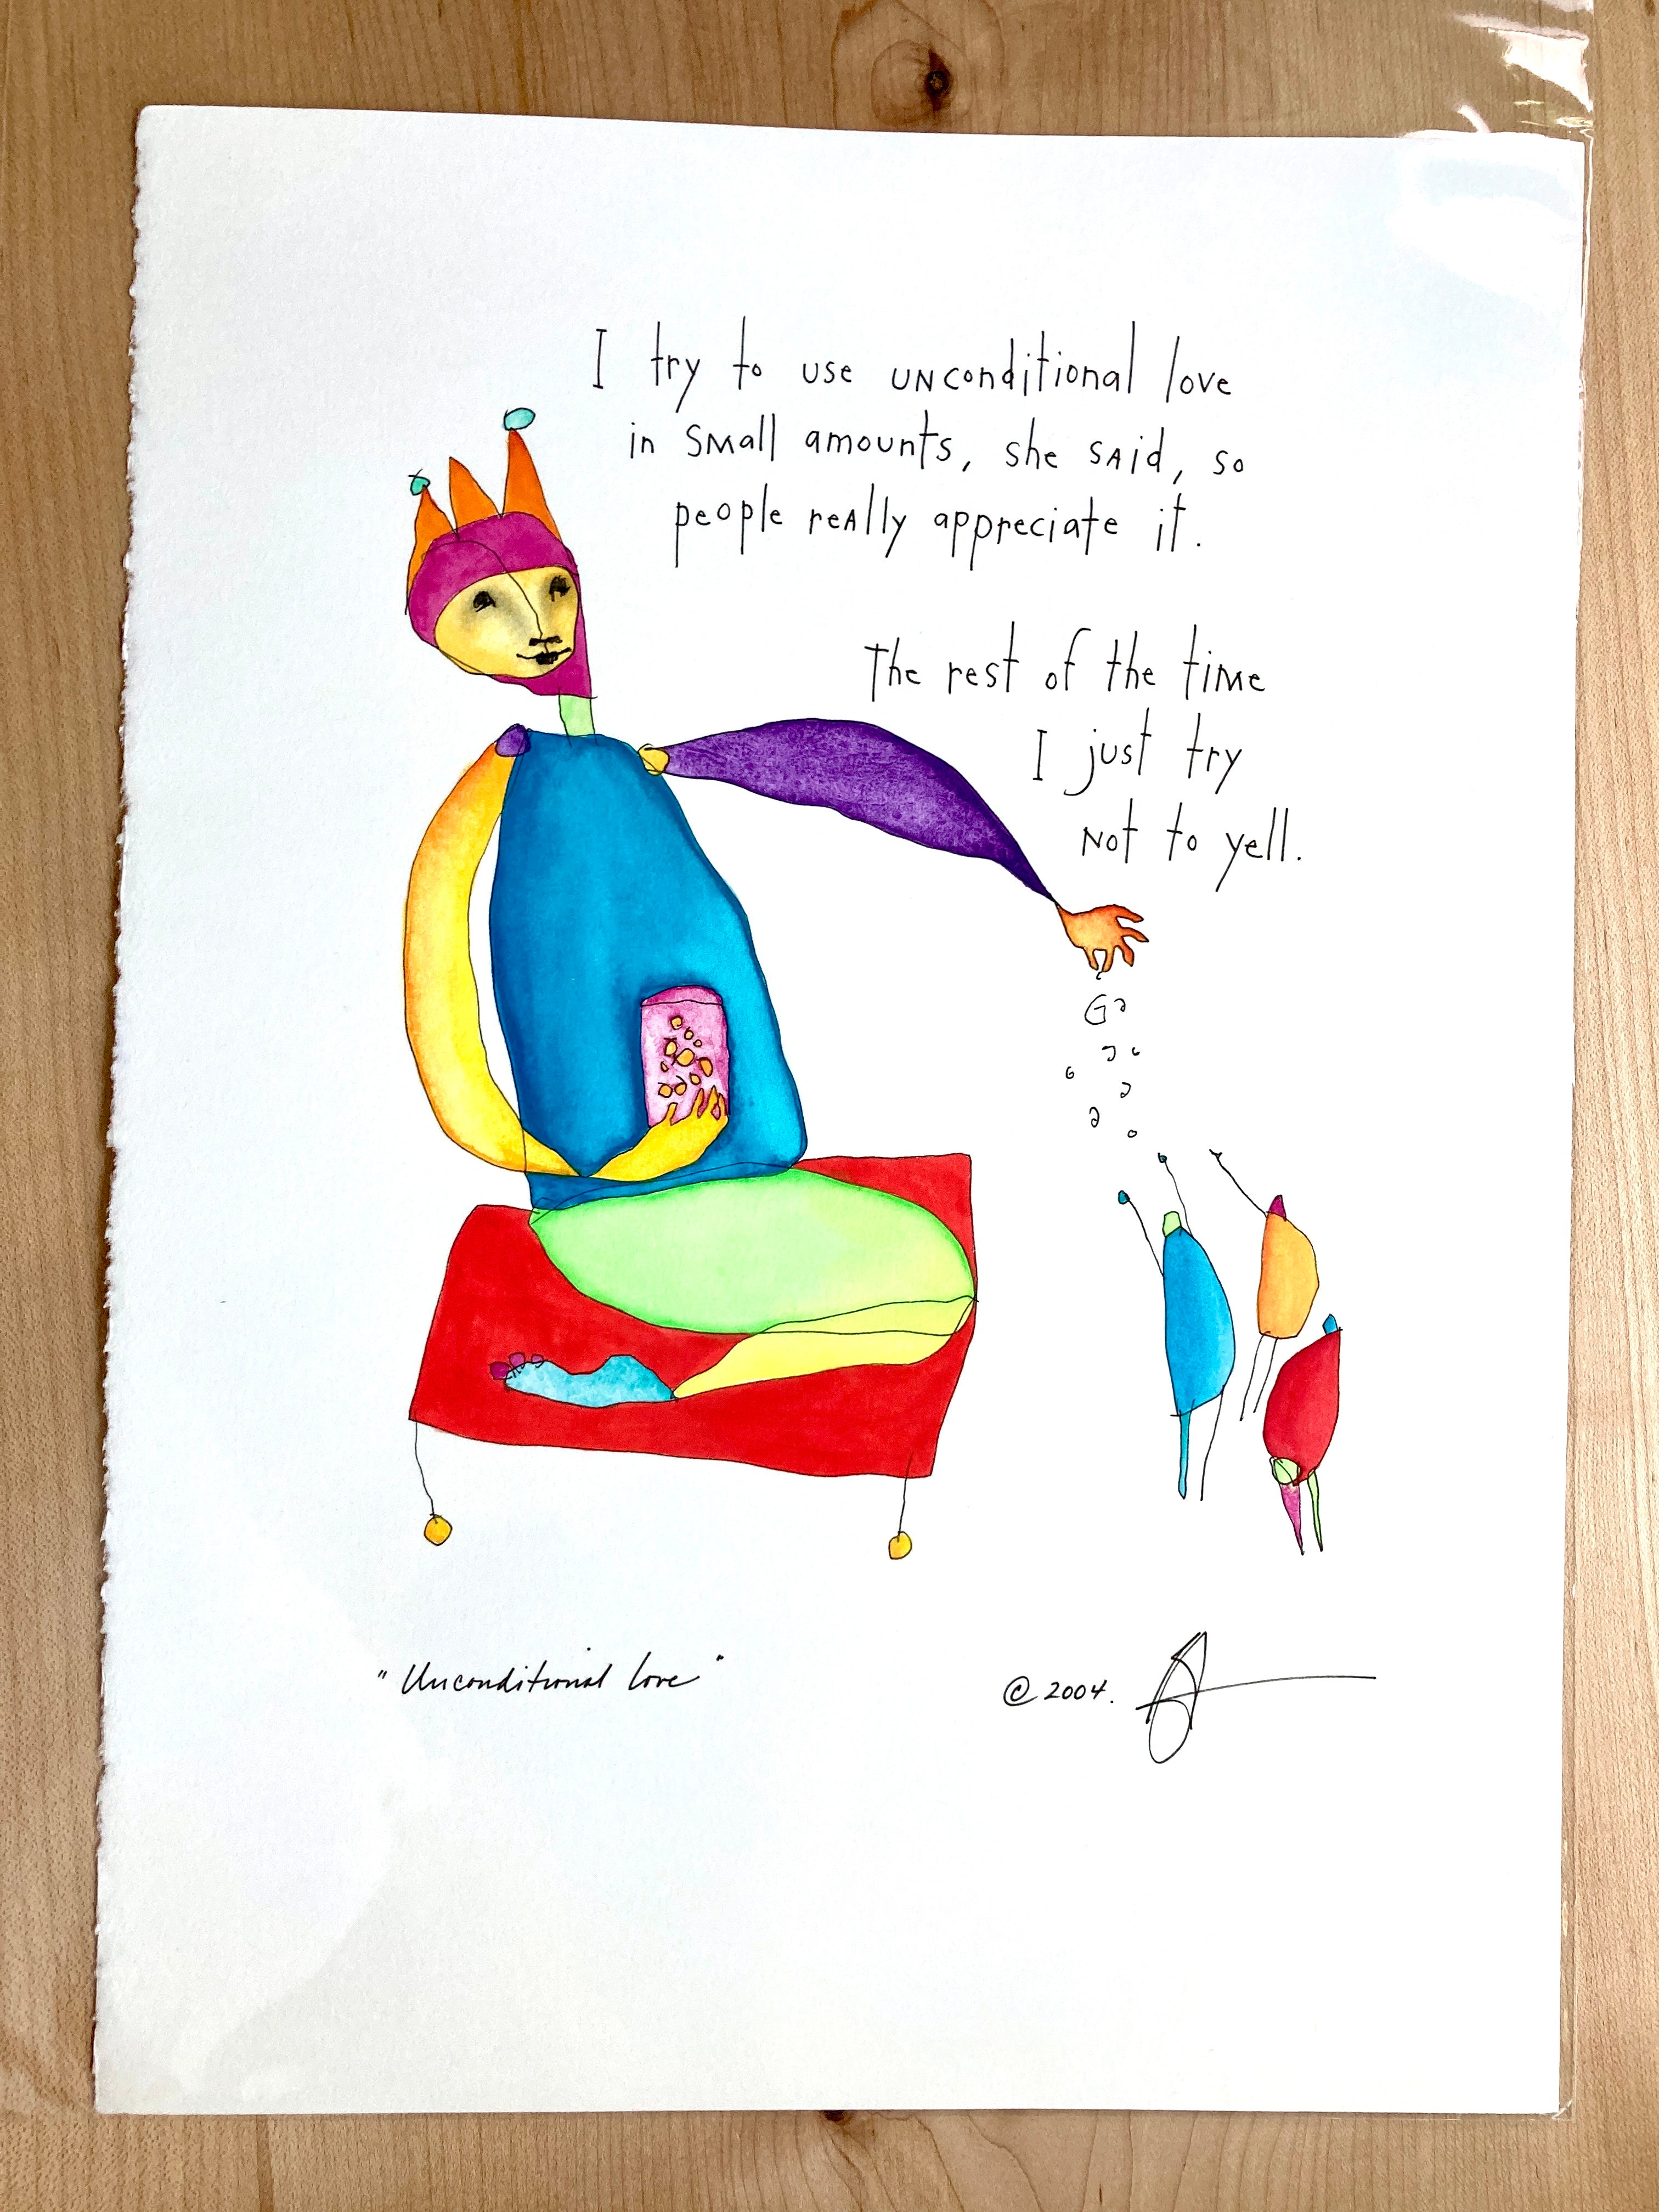 I try to use unconditional love
in small amounts, she said, so
people really appreciate it.
The rest of the time
I just try
not to yell.
"Unconditional Love"
© 2004.